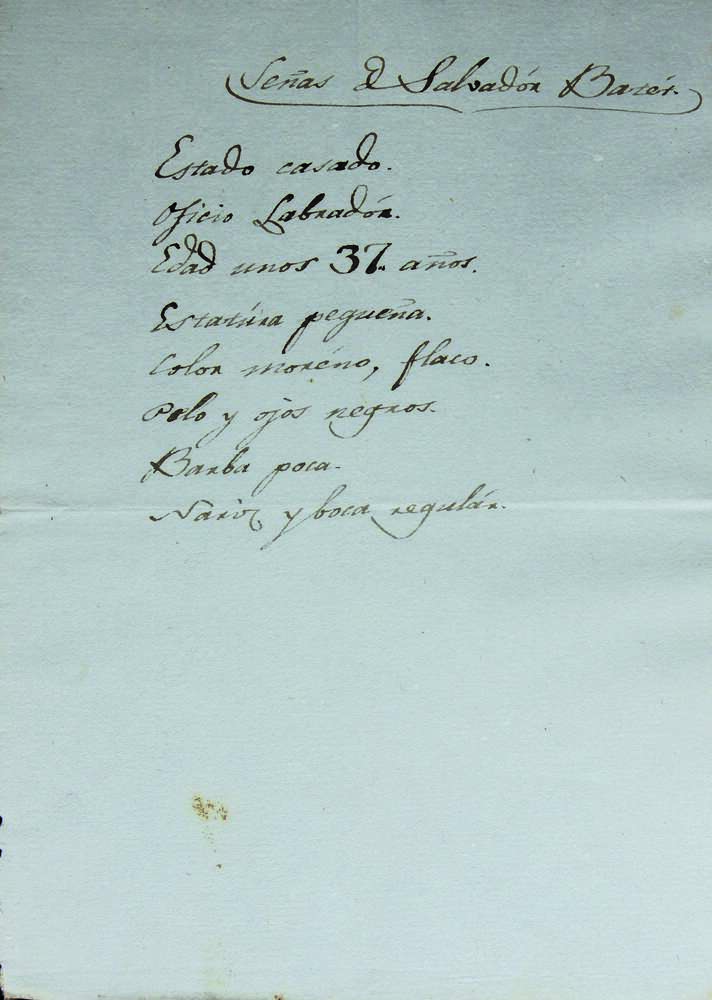 Señas d Salvadór Barér.
Estado casado.
Oficio Labradór.
Edad unos 37. años.
Estatúra pequeña.
Color moréno, flaco.
Pelo y ojos negros.
Barba poca.
Nariz, y boca regulár.